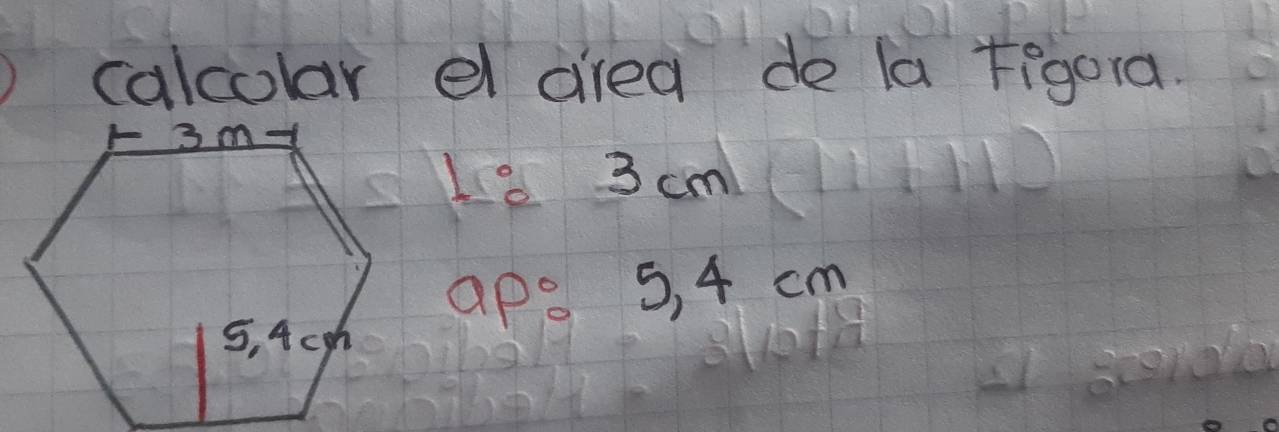 calcolar el área de la Figora.
3 m
l: 3 cm
ap: 5,4 cm
5,4 cm